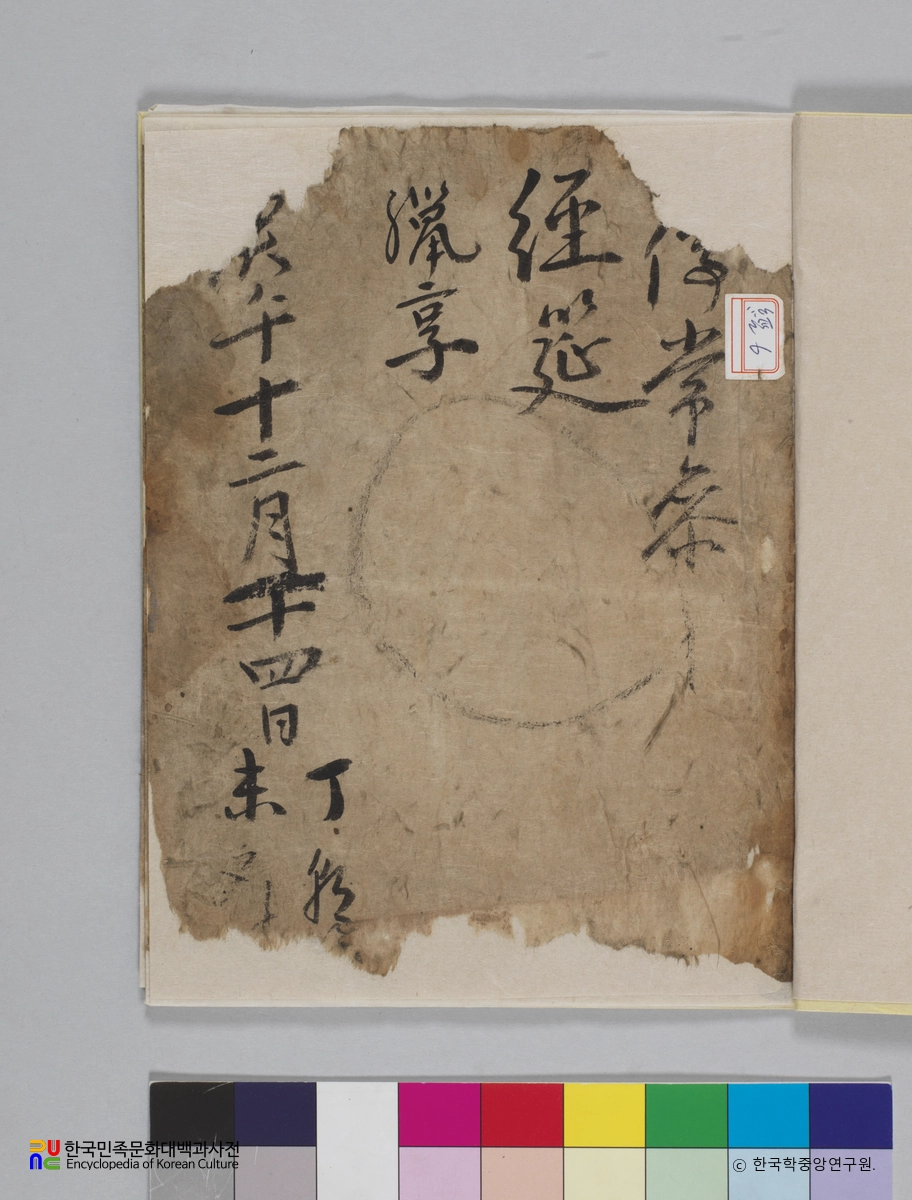 停常參
經筵
臘享
年十二月廿四日
丁
未
한국민족문화대백과사전
Encyclopedia of Korean Culture
ⓒ 한국학중앙연구원.